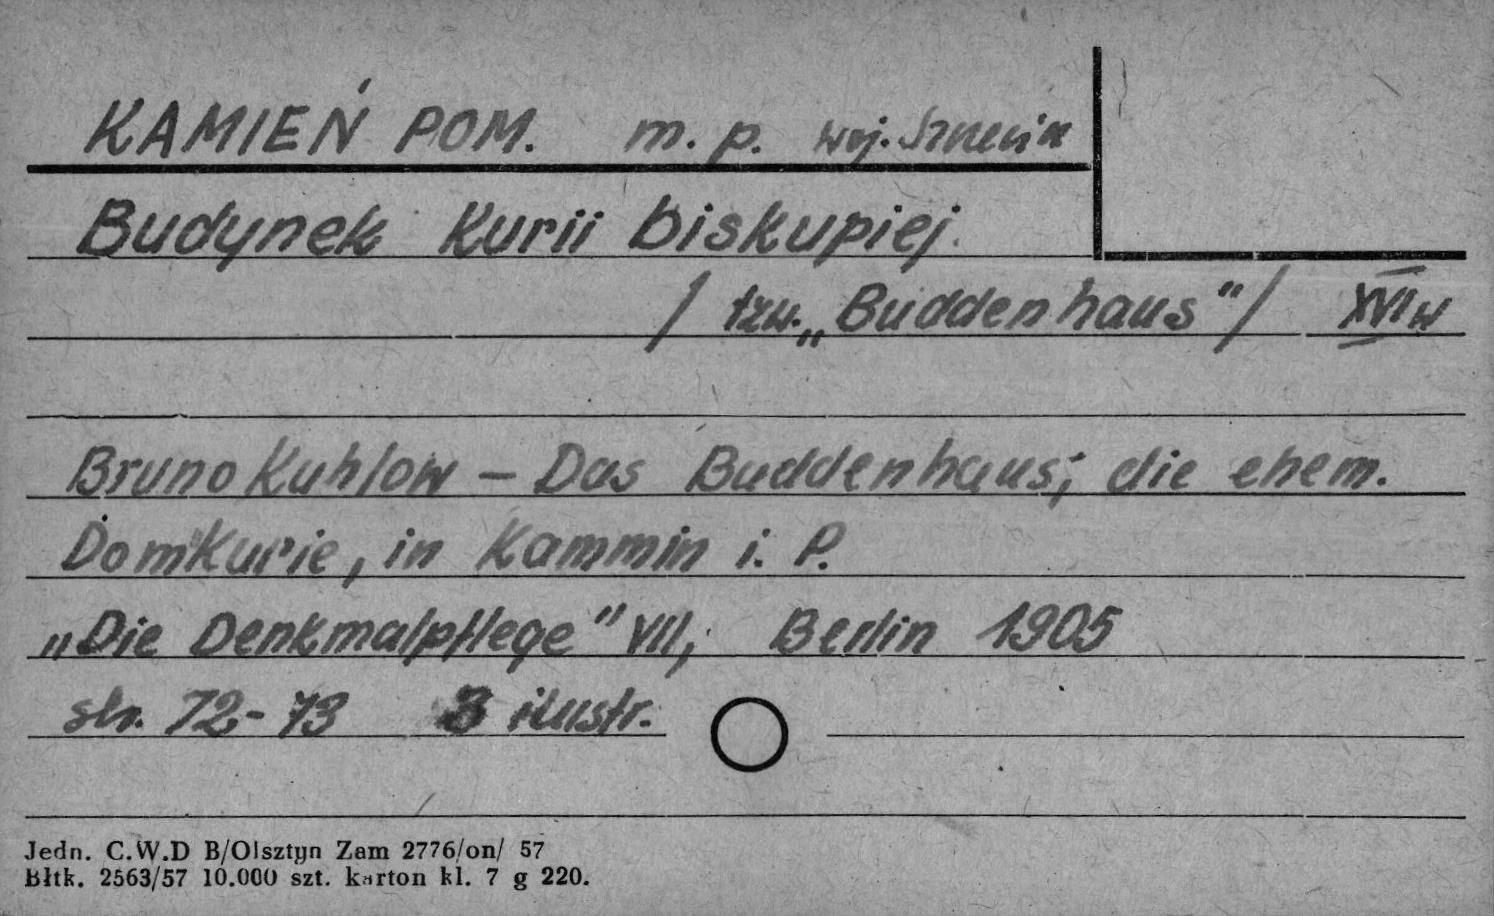 KAMIEŃ POM. m. p. woj. Szczecin
Budynek Kurii biskupiej.
/ tzw. „Buddenhaus" / XVI w
Bruno Kuhlow – Das Buddenhaus, die ehem.
Domkurie, in Kammin i. P.
„Die Denkmalpflege" VII, Berlin 1905
str. 72-73 3 ilustr.
Jedn. C.W.D B/Olsztyn Zam 2776/on/ 57
Błtk. 2563/57 10.000 szt. karton kl. 7 g 220.